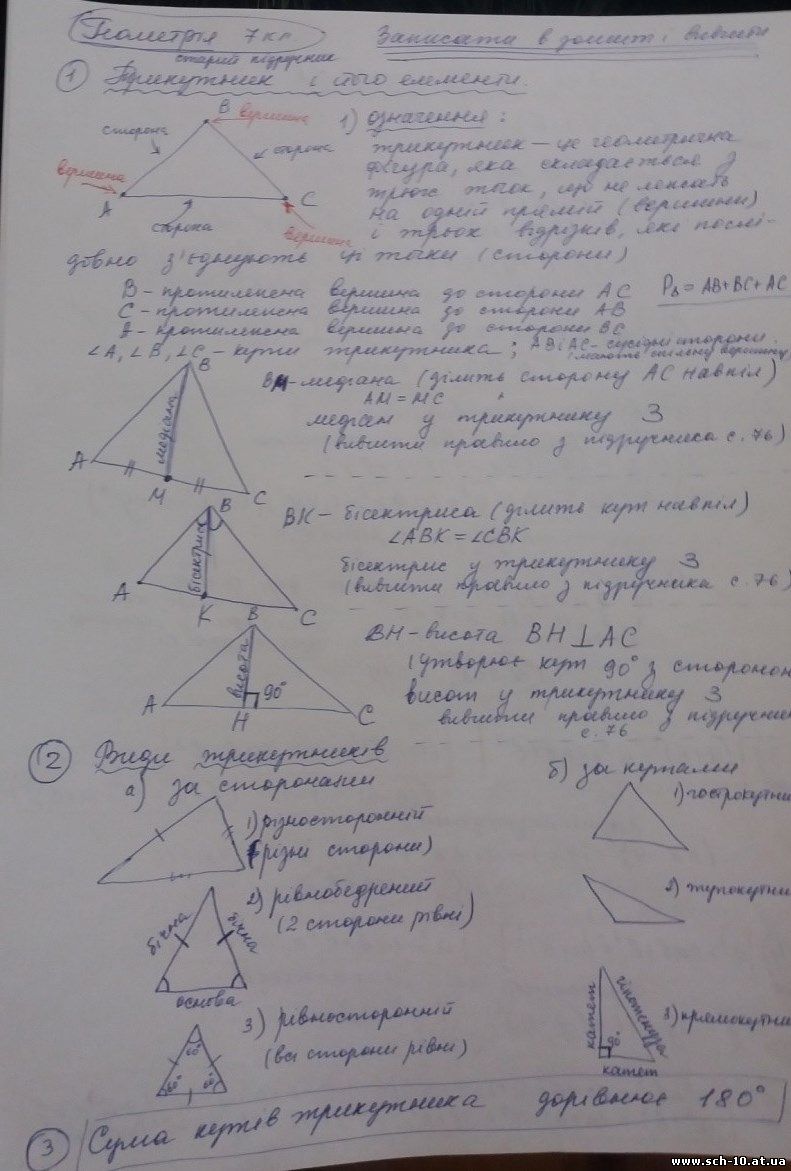 Геометрія 7 кл
Записати в зошит і вивчити
старий підручник
1 Трикутник і його елементи.
B
вершина
сторона
сторона
вершина
A
C
сторона
вершина
1) означення:
трикутник – це геометрична
фігура, яка складається з
трьох точок, що не лежать
на одній прямій (вершини)
і трьох відрізків, які послі-
довно з'єднують ці точки (сторони)
B – протилежна вершина до сторони AC
P∆ = AB+BC+AC
C – протилежна вершина до сторони AB
A – протилежна вершина до сторони BC
∠A, ∠B, ∠C – кути трикутника; AB і AC – сусідні сторони.
(мають спільну вершину)
B
медіана
A
M
C
BM – медіана (ділить сторону AC навпіл)
AM = MC
медіан у трикутнику 3
(вивчити правило з підручника с. 76)
B
бісектриса
A
K
C
BK – бісектриса (ділить кут навпіл)
∠ABK = ∠CBK
бісектрис у трикутнику 3
(вивчити правило з підручника с. 76)
B
висота
90°
A
H
C
BH – висота BH⊥AC
(утворює кут 90° з стороною
висот у трикутнику 3
вивчити правило з підручник
с. 76
2 Види трикутників
а) за сторонами
1) різносторонній
(різні сторони)
бічна
бічна
основа
2) рівнобедрений
(2 сторони рівні)
60°
60°
60°
3) рівносторонній
(всі сторони рівні)
б) за кутами
1) гострокутни
2) тупокутни
катет
гіпотенуза
90°
катет
3) прямокутни
3 Сума кутів трикутника дорівнює 180°
www.sch-10.at.ua